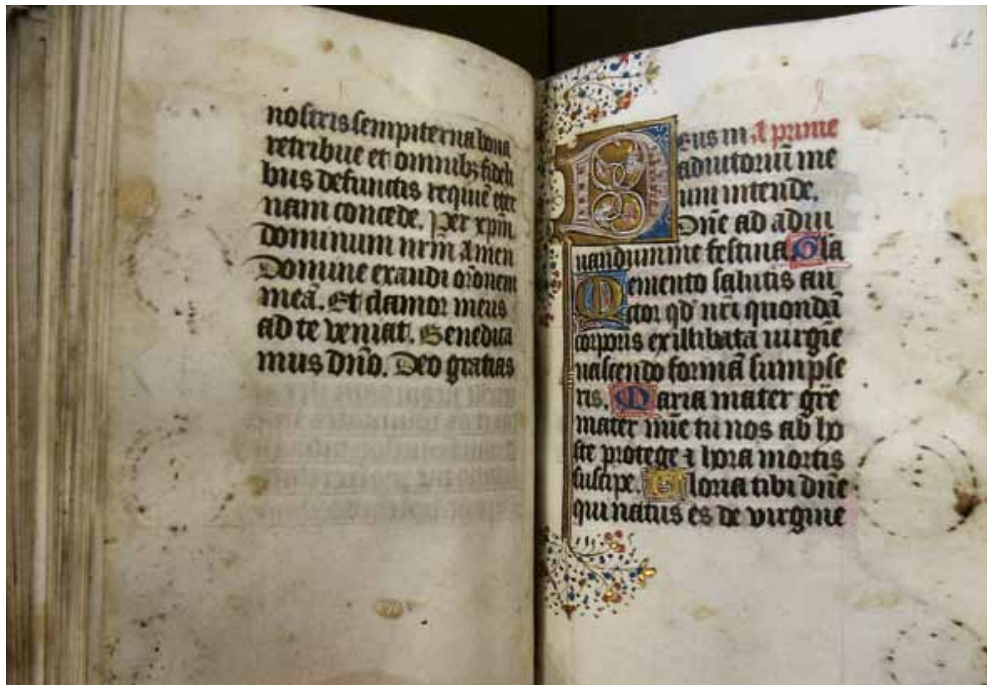 nostris sempiterna bona
retribue et omnibꝫ fideli
bus defunctis requiē eter
nam concede. Per xp̄m
dominum nr̄m Amen
Domine exaudi or̄onem
meā. Et clamor meus
ad te veniat. Benedica
mus dn̄o. Deo gratias
62
Deus in A prime
adiutoriū me
um intende.
Dn̄e ad adiu
uandum me festina Gla
Memento salutis au
ctor qd̄ nr̄i quondā
corporis ex illibata uirgīe
nascendo formā sumpse
ris. Maria mater gr̄e
mater mīe tu nos ab ho
ste protege ⁊ hora mortis
suscipe. Gloria tibi dn̄e
qui natus es de virgine